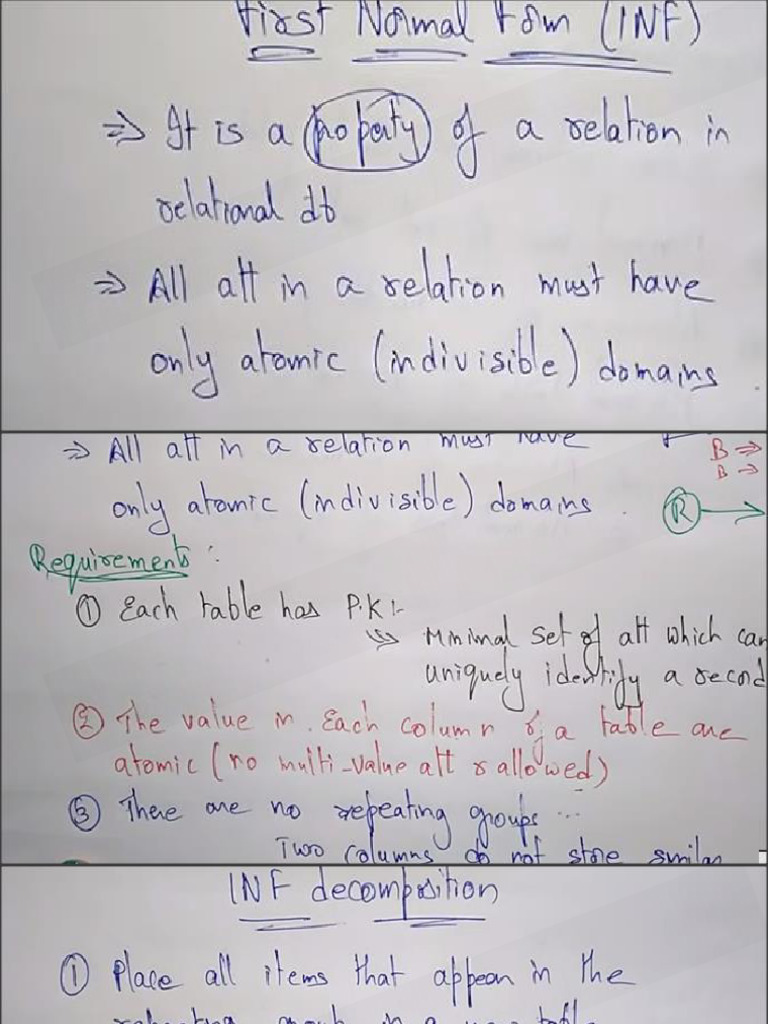 First Normal Form (1NF)
⇒ It is a property of a relation in
relational db
⇒ All att in a relation must have
only atomic (indivisible) domains
⇒ All att in a relation must have
B ⇒
B ⇒
only atomic (indivisible) domains.
R →
Requirements :
① Each table has P.K :-
⇒ Minimal set of att which can
uniquely identify a record
② The value in each column of a table are
atomic (no multi-value att is allowed)
③ There are no repeating groups ...
Two columns do not store similar
1NF decomposition
① Place all items that appear in the
repeating group in a new table